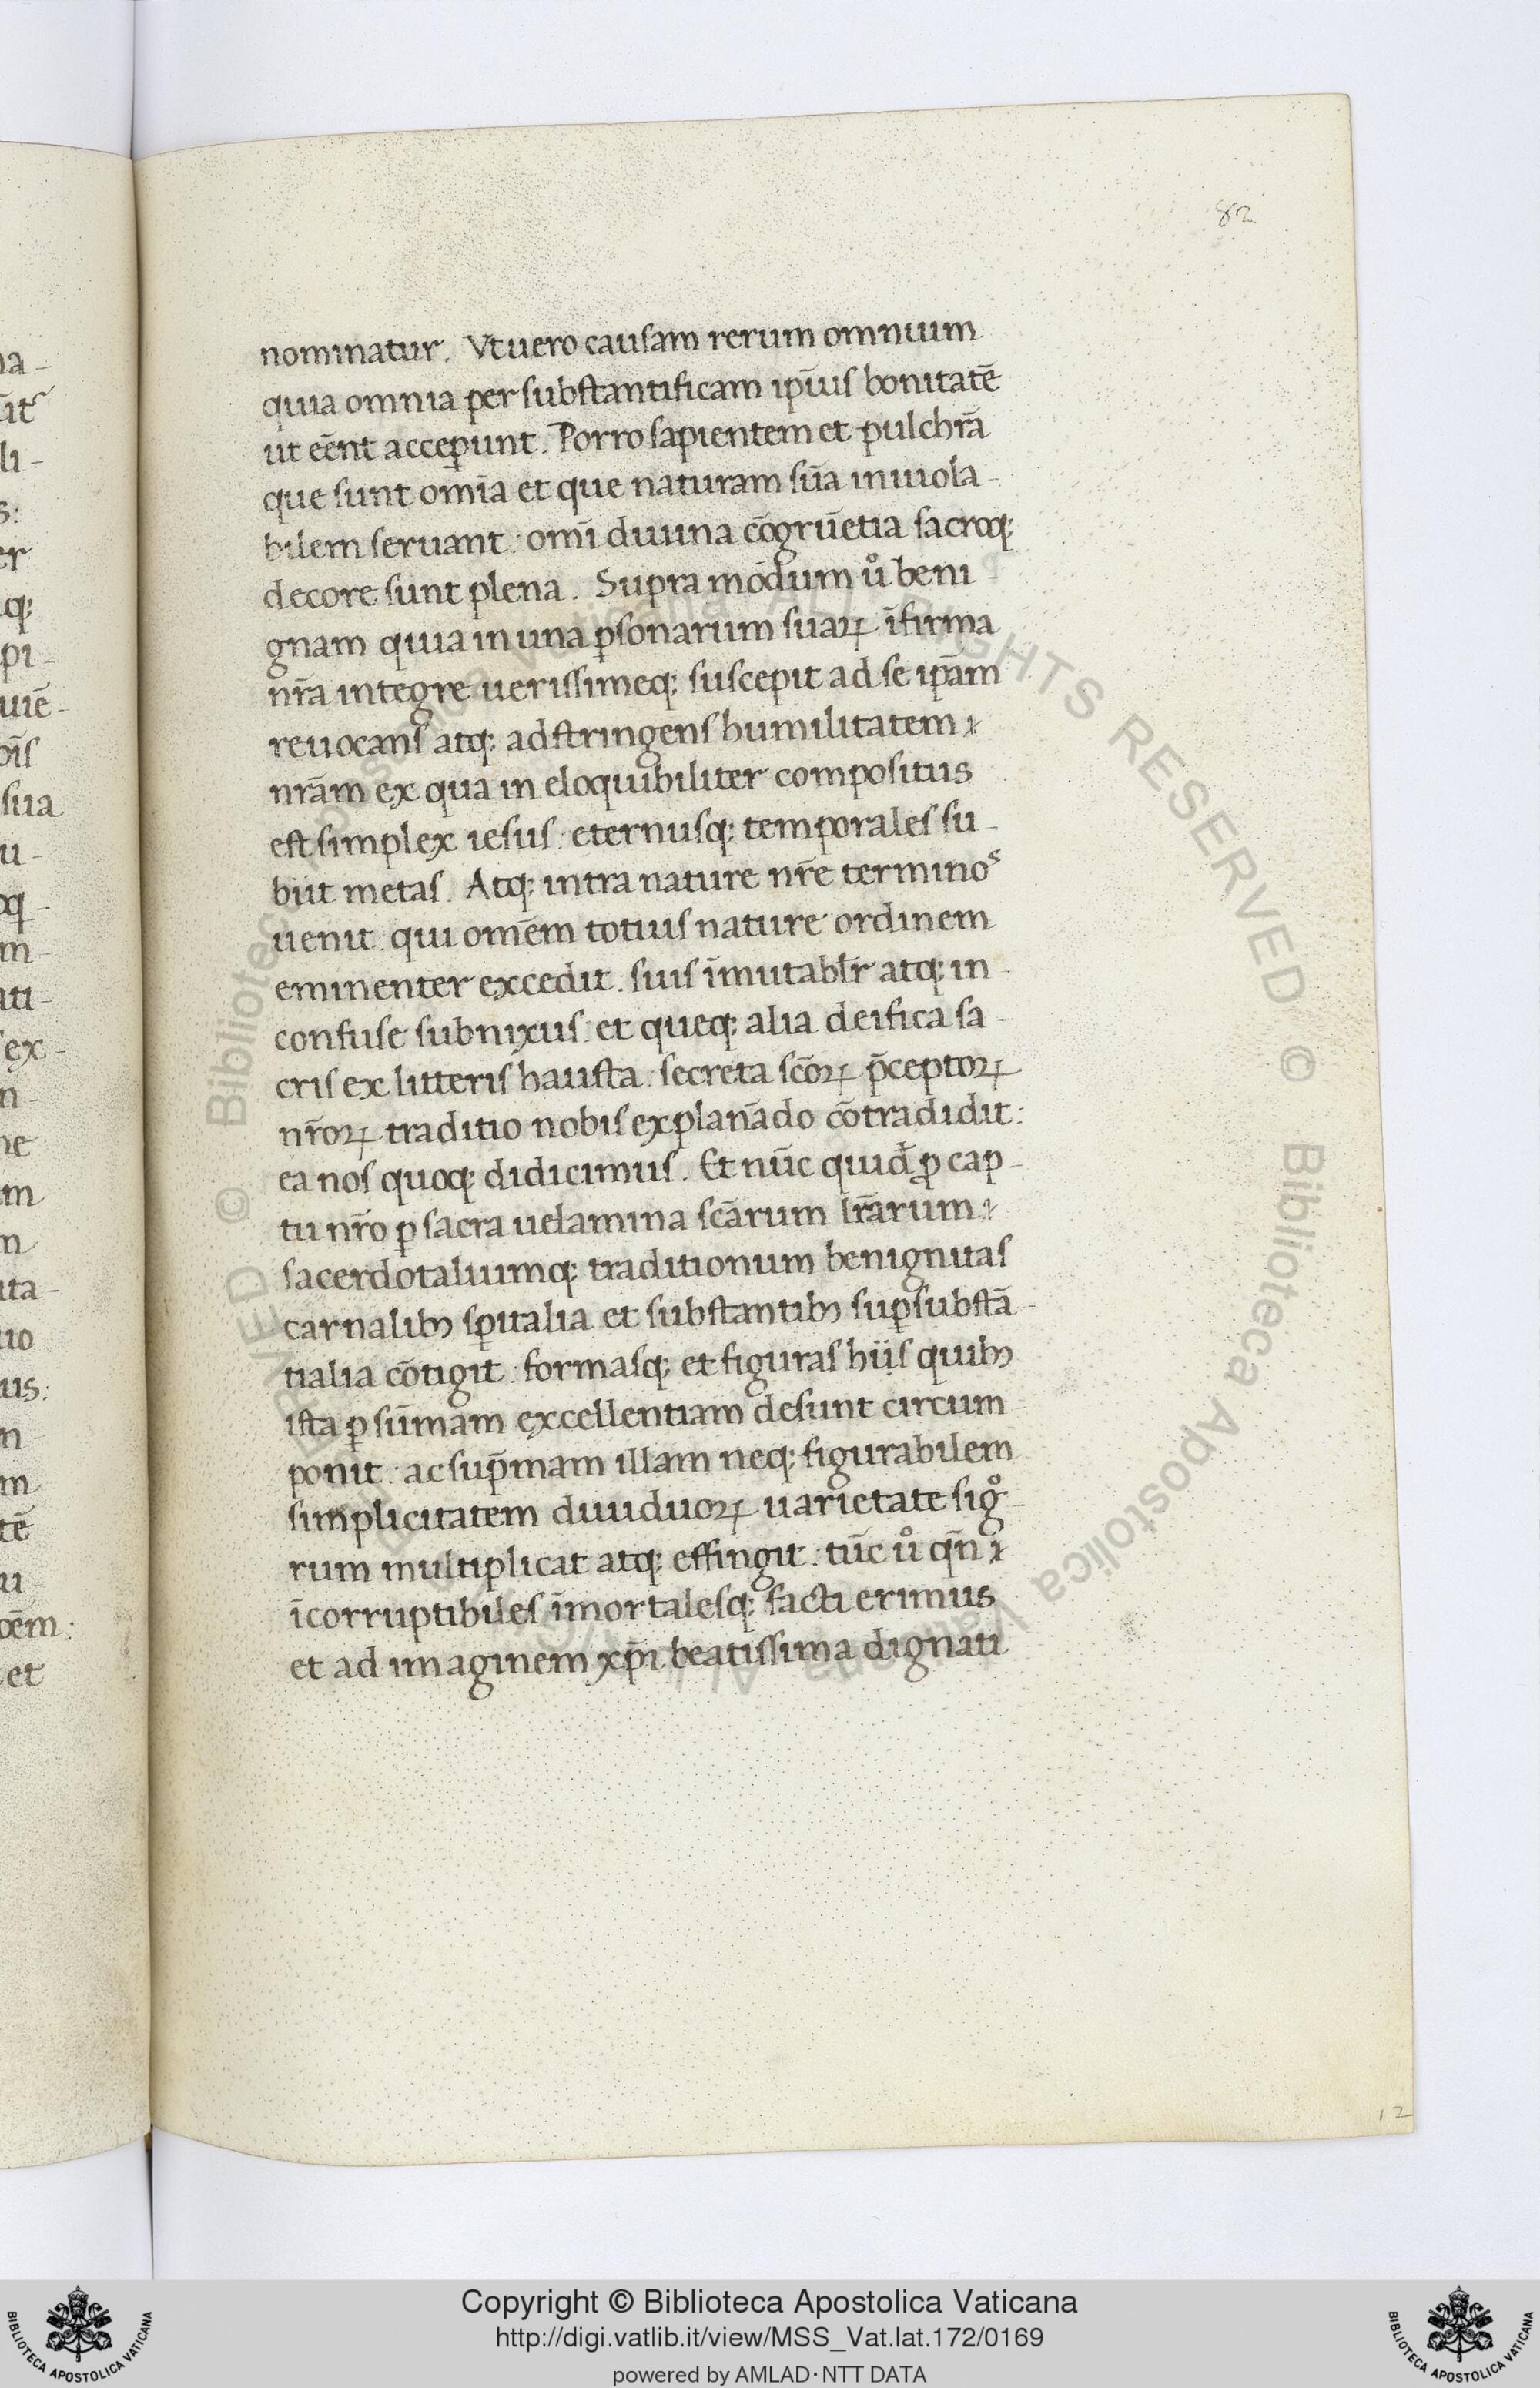 82
nominatur. Vt uero causam rerum omnium
quia omnia per substantificam ip̄ius bonitatē
ut eēnt acceꝑunt. Porro sapientem et pulchrā
que sunt om̄ia et que naturam sūa inuiola-
bilem seruant: om̄i diuina cōgrūetia sacroq;
decore sunt plena. Supra modum ů beni
gnam quia in una ꝑsonarum suaꝝ īfirma
nr̄a integre uerissimeq; suscepit ad se ip̄am
reuocans atq; adstringens humilitatem
nrām ex qua in eloquibiliter compositus
est simplex iesus: eternusq; temporales su-
biit metas. Atq; intra nature nr̄e terminos
uenit: qui omēm totius nature ordinem
eminenter excedit. suis īmutabłr atq; in-
confuse subnixus: et queq; alia deifica sa-
cris ex litteris hausta: secreta scōꝝ p̄ceptoꝝ
nr̄oꝝ traditio nobis explanādo cōtradidit:
ea nos quoq; didicimus. Et nūc quid̄ ꝓ cap-
tu nr̄o ꝑ sacra uelamina scārum lr̄arum
sacerdotaliumq; traditionum benignitas
carnalibꝫ sꝑitalia et substantibꝫ suꝑsubstā-
tialia cōtigit: formasq; et figuras hiis quibꝫ
ista ꝑ sūmam excellentiam desunt circum
ponit: ac sup̄mam illam neq; figurabilem
simplicitatem diuiduoꝝ uarietate sig̊-
rum multiplicat atq; effingit: tūc ů qn̄
īcorruptibiles īmortalesq; facti erimus
et ad imaginem xp̄i beatissima dignati
12
na-
li-
s:
er
q;
pi-
uiē-
sua
u-
m
ati-
ex-
n-
ne
m
n
ita-
uo
us:
n
m
tē
u
et
© Biblioteca Apostolica Vaticana ALL RIGHTS RESERVED © Biblioteca Apostolica Vaticana ALL RIGHTS RESERVED
BIBLIOTECA APOSTOLICA VATICANA
Copyright © Biblioteca Apostolica Vaticana
http://digi.vatlib.it/view/MSS_Vat.lat.172/0169
powered by AMLAD·NTT DATA
BIBLIOTECA APOSTOLICA VATICANA